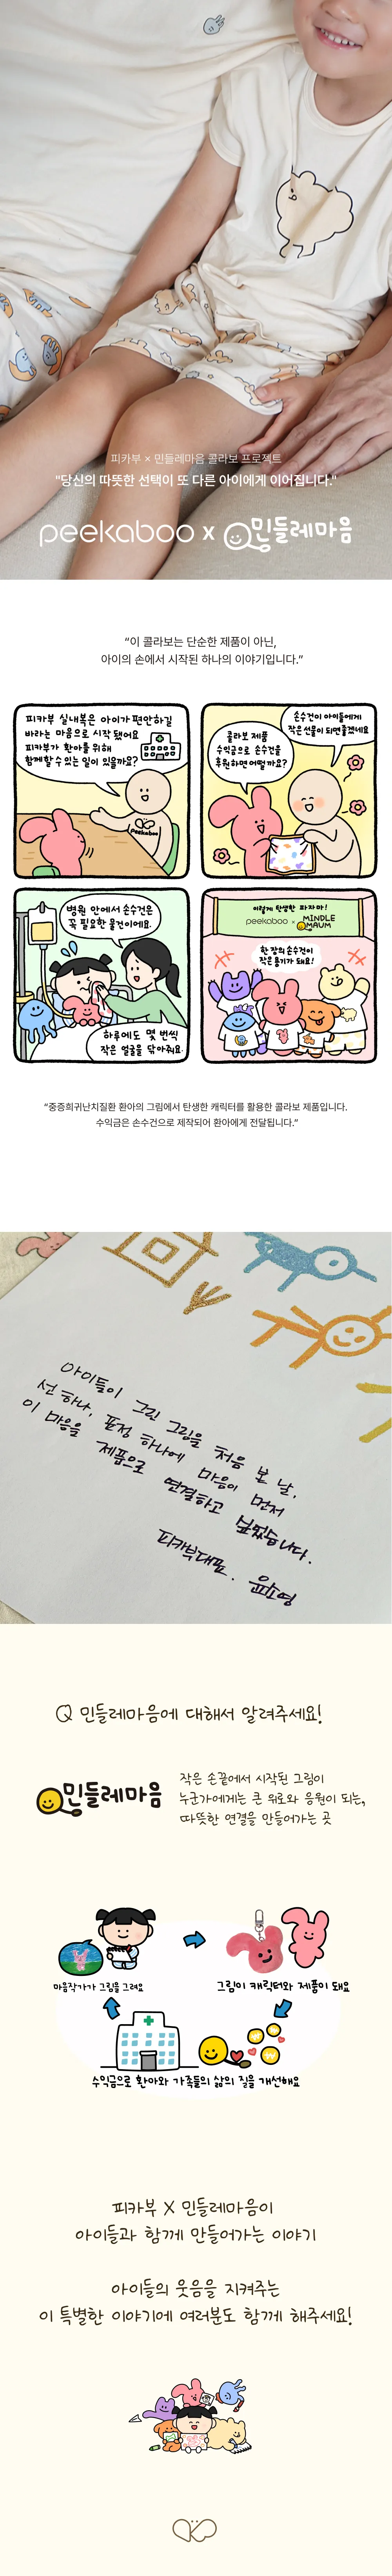 피카부 × 민들레마음 콜라보 프로젝트
"당신의 따뜻한 선택이 또 다른 아이에게 이어집니다."
peekaboo x 민들레마음
“이 콜라보는 단순한 제품이 아닌,
아이의 손에서 시작된 하나의 이야기입니다.”
피카부 실내복은 아이가 편안하길
바라는 마음으로 시작 됐어요
피카부가 환아를 위해
함께할 수 있는 일이 있을까요?
peekaboo
손수건이 아이들에게
작은선물이 되면좋겠네요
콜라보 제품
수익금으로 손수건을
후원하면 어떨까요?
병원 안에서 손수건은
꼭 필요한 물건이에요.
하루에도 몇 번씩
작은 얼굴을 닦아줘요
이렇게 탄생한 파자마!
peekaboo × MINDLE
MAUM
한 장의 손수건이
작은 용기가 돼요!
“중증희귀난치질환 환아의 그림에서 탄생한 캐릭터를 활용한 콜라보 제품입니다.
수익금은 손수건으로 제작되어 환아에게 전달됩니다.”
아이들이 그린 그림을 처음 본 날,
선 하나, 표정 하나에 마음이 먼저
이 마음을 제품으로 연결하고 싶었습니다.
피카부대표.
Q 민들레마음에 대해서 알려주세요!
민들레마음
작은 손끝에서 시작된 그림이
누군가에게는 큰 위로와 응원이 되는,
따뜻한 연결을 만들어가는 곳
마음작가가 그림을 그려요
그림이 캐릭터와 제품이 돼요
수익금으로 환아와 가족들의 삶의 질을 개선해요
피카부 X 민들레마음이
아이들과 함께 만들어가는 이야기
아이들의 웃음을 지켜주는
이 특별한 이야기에 여러분도 함께 해주세요!